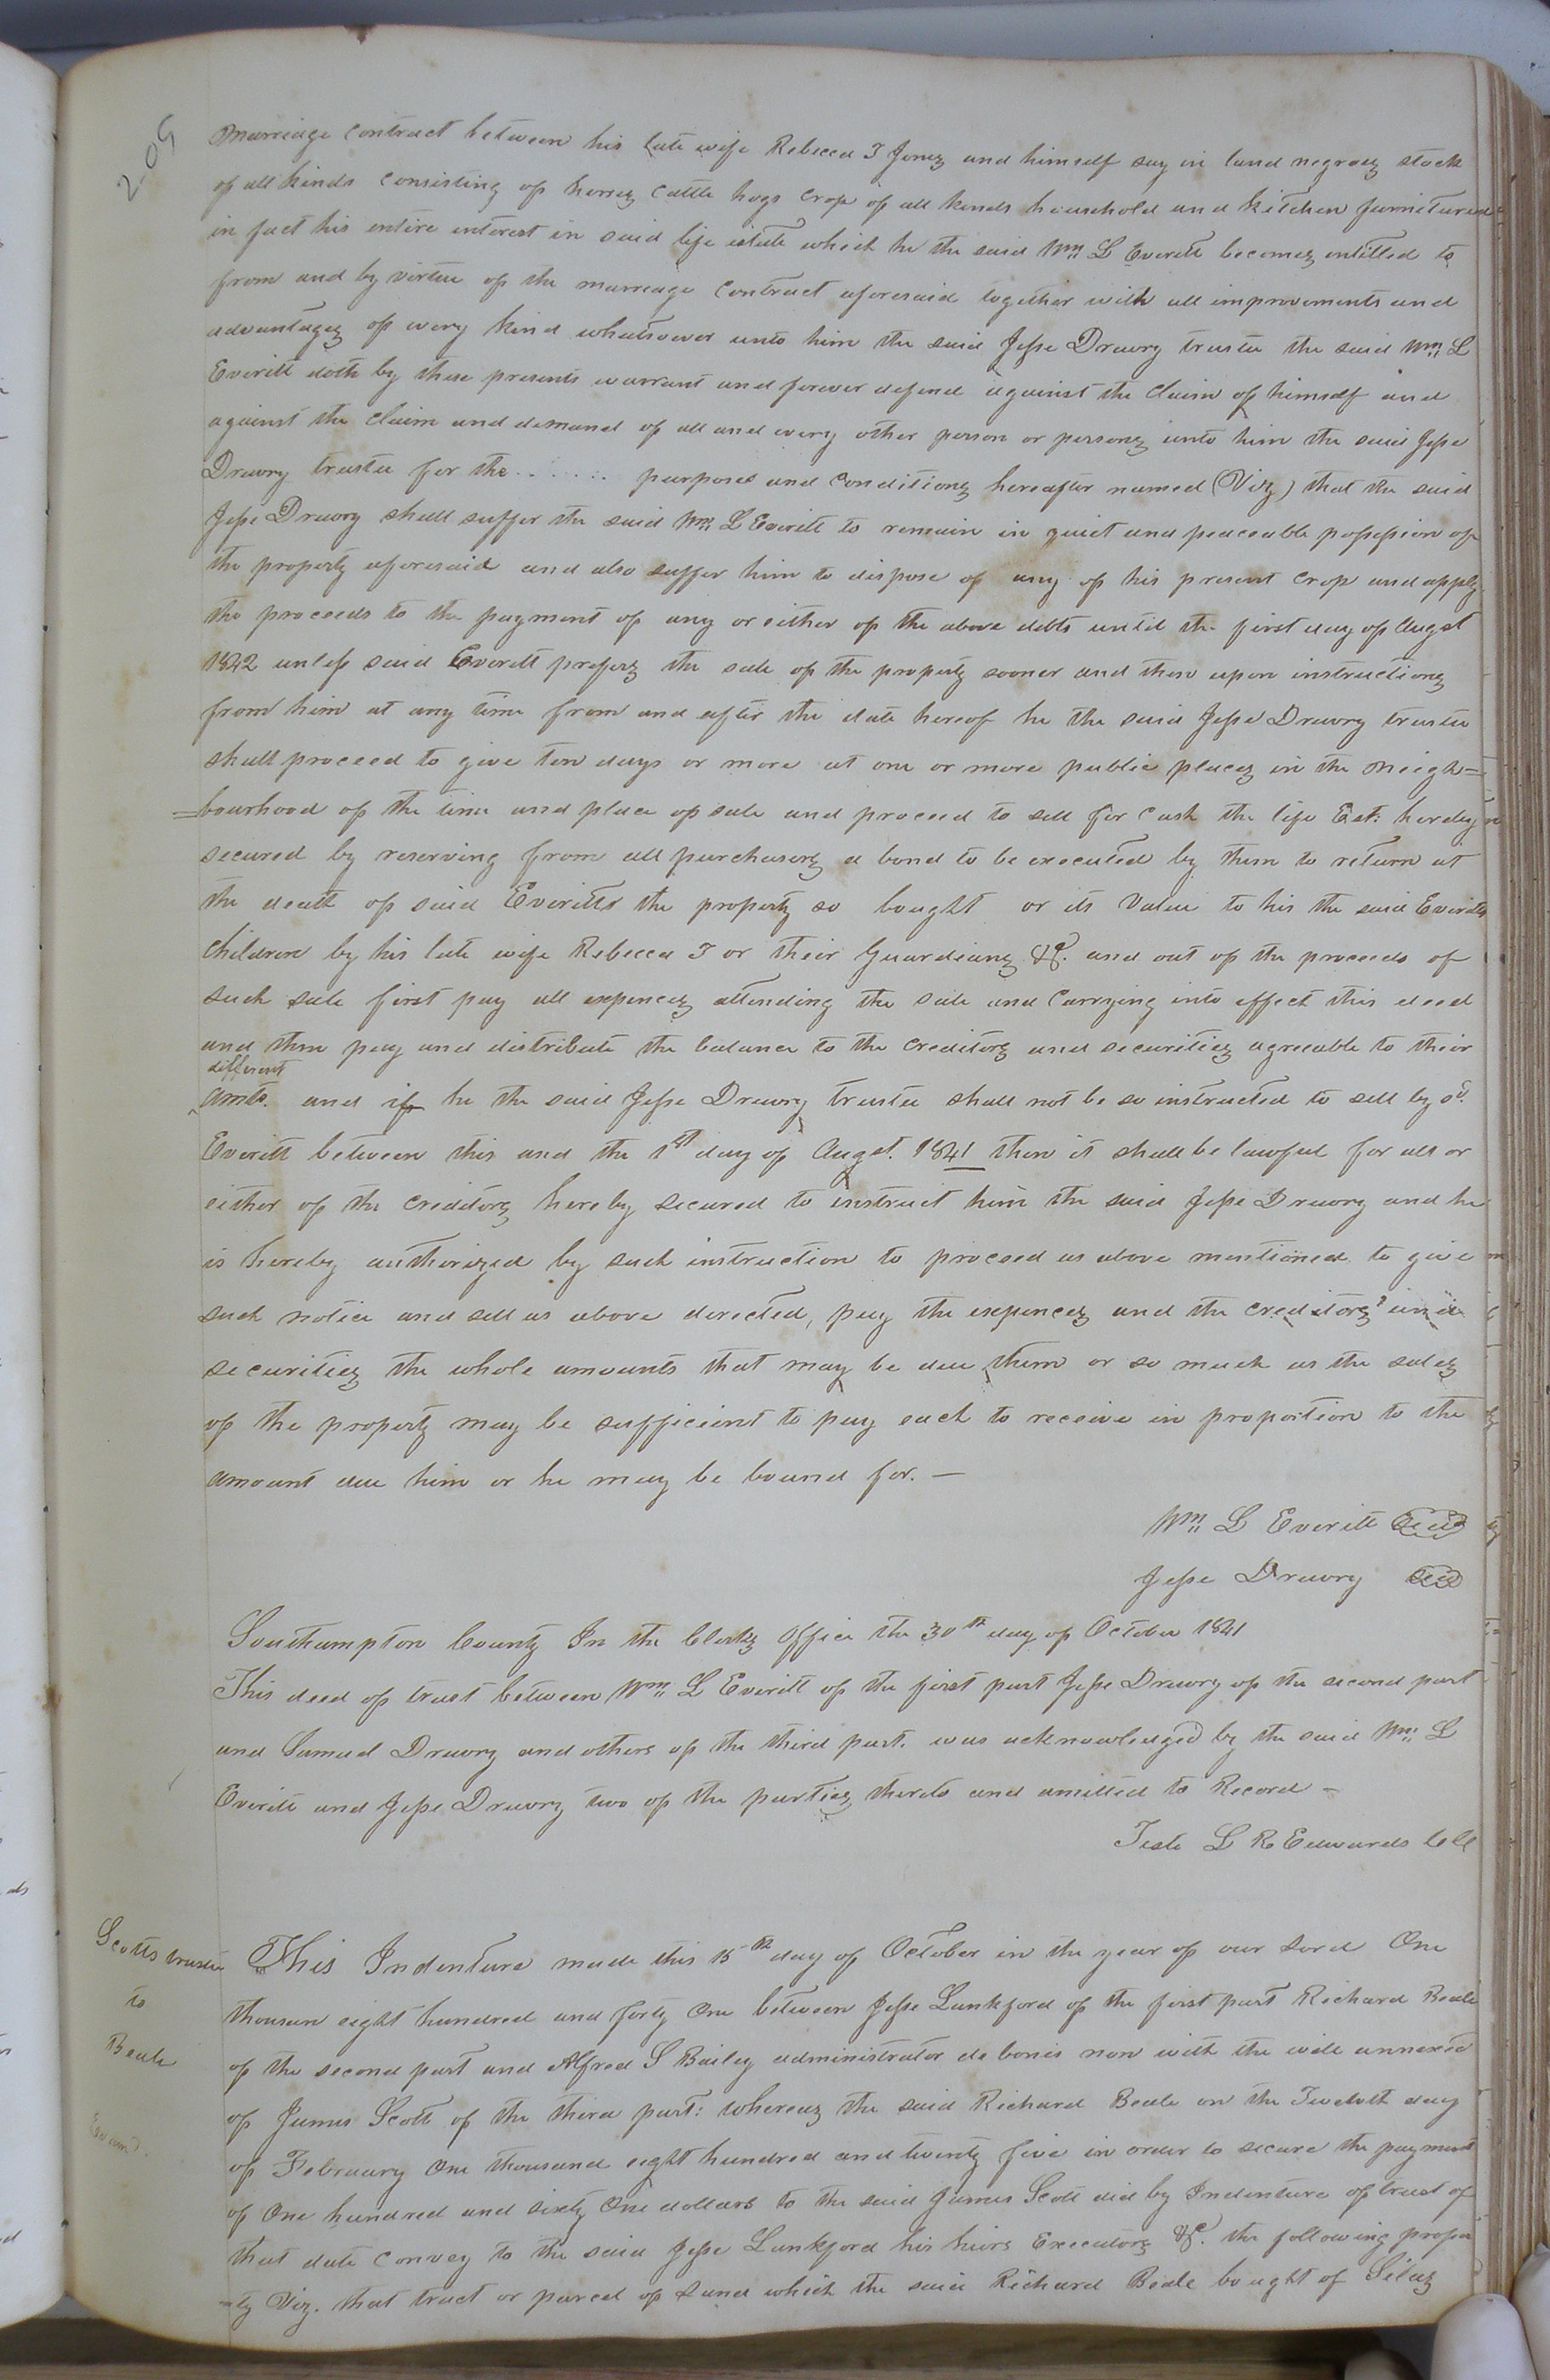 209
Marriage Contract between his late wife Rebecca T Jones and himself say in land negroes stock
of all kinds Consisting of horses Cattle hogs Crop of all kinds household and Kitchen furniture
in fact his entire interest in said life estate which he the said Wm L Everitt becomes entitled to
from and by virtue of the marriage Contract aforesaid together with all improvements and
advantages of every kind whatsoever unto him the said Jesse Drewry trustee the said Wm L
Everitt doth by these presents warrant and forever defend against the claim of himself and
against the claim and demand of all and every other person or persons unto him the said Jesse
Drewry trustee for the ....... purposes and Conditions hereafter named (Viz) that the said
Jesse Drewry shall suffer the said Wm L Everitt to remain in quiet and peaceable possession of
the property aforesaid and also suffer him to dispose of any of his present Crop and apply
the proceeds to the payment of any or either of the above debts until the first day of Augst
1842 unless said Everitt prefers the sale of the property sooner and then upon instructions
from him at any time from and after the date hereof he the said Jesse Drewry trustee
shall proceed to give ten days or more at one or more public places in the neigh=
=bourhood of the time and place of sale and proceed to sell for Cash the life Est: hereby
secured by reserving from all purchasers a bond to be executed by them to return at
the death of said Everitts the property so bought or its Value to his the said Everitts
children by his late wife Rebecca T or their Guardians &c. and out of the proceeds of
such sale first pay all expences attending the sale and Carrying into effect this deed
and then pay and distribute the balance to the Creditors and securities agreeable to their
different
amts. and if he the said Jesse Drewry trustee shall not be so instructed to sell by sd.
Everitt between this and the 1st day of Augst. 1841 then it shall be lawful for all or
either of the Creditors hereby secured to instruct him the said Jesse Drewry and he
is hereby authorized by such instruction to proceed as above mentioned to give
such notice and sell as above directed, pay the expences and the Creditors and
securities the whole amounts that may be due them or so much as the sales
of the property may be sufficient to pay each to receive in proportion to the
amount due him or he may be bound for. —
Wm L Everitt Seal
Jesse Drewry Seal
Southampton County In the Clerks Office the 30th day of October 1841
This deed of trust between Wm L Everitt of the first part Jesse Drewry of the second part
and Samuel Drewry and others of the third part. was acknowledged by the said Wm L
Everitt and Jesse Drewry two of the parties thereto and amitted to Record –
Teste L R Edwards CC
Scotts trustee
to
Beale
This Indenture made this 15th day of October in the year of our Lord One
thousan eight hundred and forty One between Jesse Lankford of the first part Richard Beale
of the second part and Alfred S Bailey administrator de bonis non with the will annexed
of James Scott of the third part: whereas the said Richard Beale on the Twelvth day
of February One thousand eight hundred and twenty five in order to secure the payment
of One hundred and sixty One dollars to the said James Scott did by Indenture of trust of
that date Convey to the said Jesse Lankford his heirs Executors &c. the following proper
=ty Viz. that tract or parcel of Land which the said Richard Beale bought of Silas